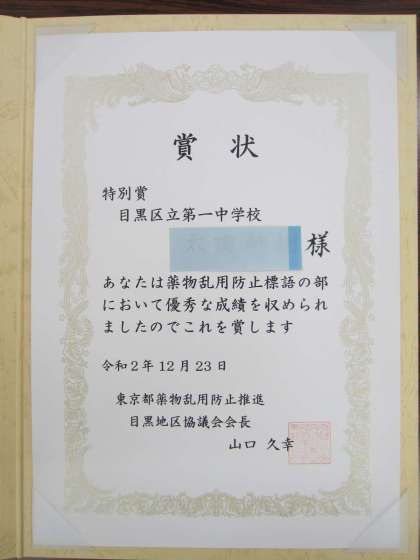 賞状
特別賞
目黒区立第一中学校
様
あなたは薬物乱用防止標語の部
において優秀な成績を収められ
ましたのでこれを賞します
令和2年12月23日
東京都薬物乱用防止推進
目黒地区協議会会長
山口 久幸